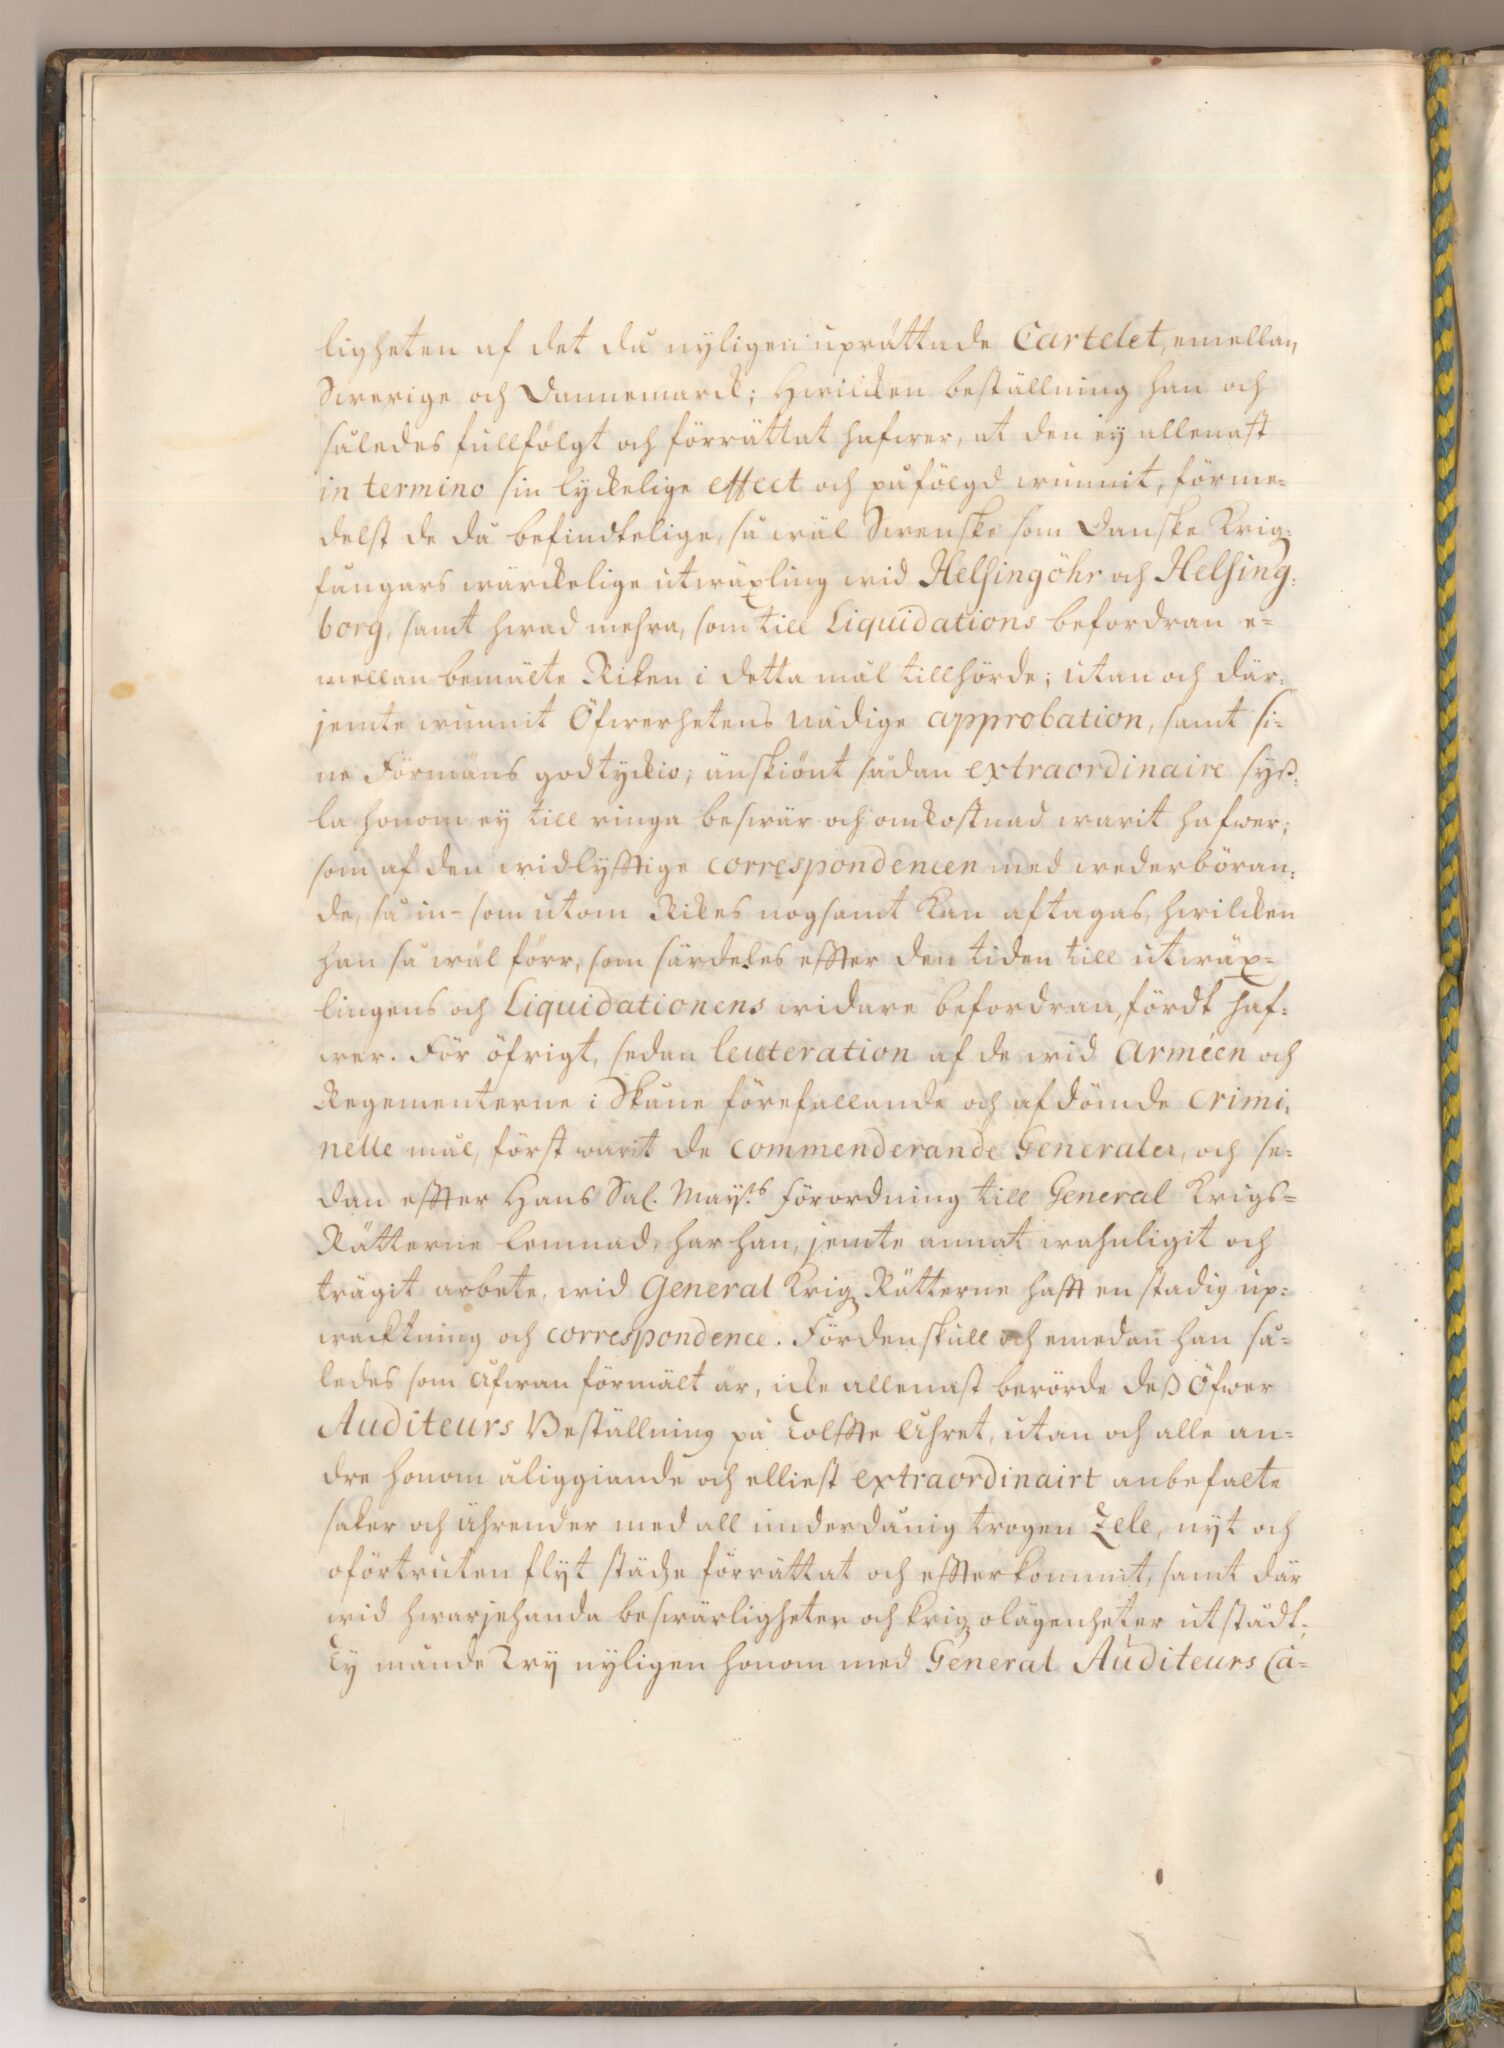 ligheten af det då nyligen uprättade Cartelet, emellan
Swerige och Dannemarck; Hwilcken beställning han och
således fullfölgt och förrättat hafwer, at den ey allenast
in termino sin lyckelige effect och påfölgd wunnit, förme-
delst de då befindtelige, så wäl Swenske som Danske Krigz
fångars würckelige utwäxling wid Helsingöhr och Helsing-
borg, samt hwad mehra, som till Liquidations befordran e-
mellan bemälte Riken i detta mål tillhörde; utan och där-
jemte wunnit Öfwerhetens nådige approbation, samt si-
ne Förmäns godtyckio; änskiönt sådan extraordinaire syß-
la honom ey till ringa beswär och omkostnad warit hafwer;
som af den widlyfftige correspondencen med wederböran-
de, så in- som utom Rikes nogsamt kan aftagas, hwilcken
han så wäl förr, som särdeles effter den tiden till utwäx-
lingens och Liquidationens widare befordran, fördt haf-
wer. För öfrigt, sedan leuteration af de wid Arméen och
Regementerne i Skåne förefallande och afdömde crimi-
nelle mål, först warit de commenderande Generaler, och se-
dan effter Hans Sal. Mayts. Förordning till General Krigs-
Rätterne lemnad, har han, jemte annat wahnligit och
trägit arbete, wid General Krigz Rätterne hafft en stadig up-
wacktning och correspondence. Fördenskull och emedan han så-
ledes som åfwan förmält är, icke allenast berörde deß Öfwer
Auditeurs Beställning på Tolffte åhret, utan och alle an-
dre honom åliggiande och elliest extraordinairt anbefalte
saker och ährender med all underdånig trogen Zele, nyt och
oförtruten flyt städze förrättat och effterkommit, samt där
wid hwarjehanda beswärligheter och krigz olägenheter utstådt;
Ty månde Wy nyligen honom med General Auditeurs Ca-